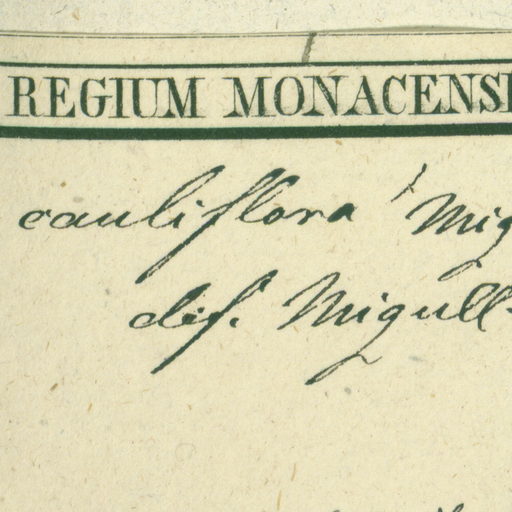 REGIUM MONACENS
cauliflora Mig
dif. Migull